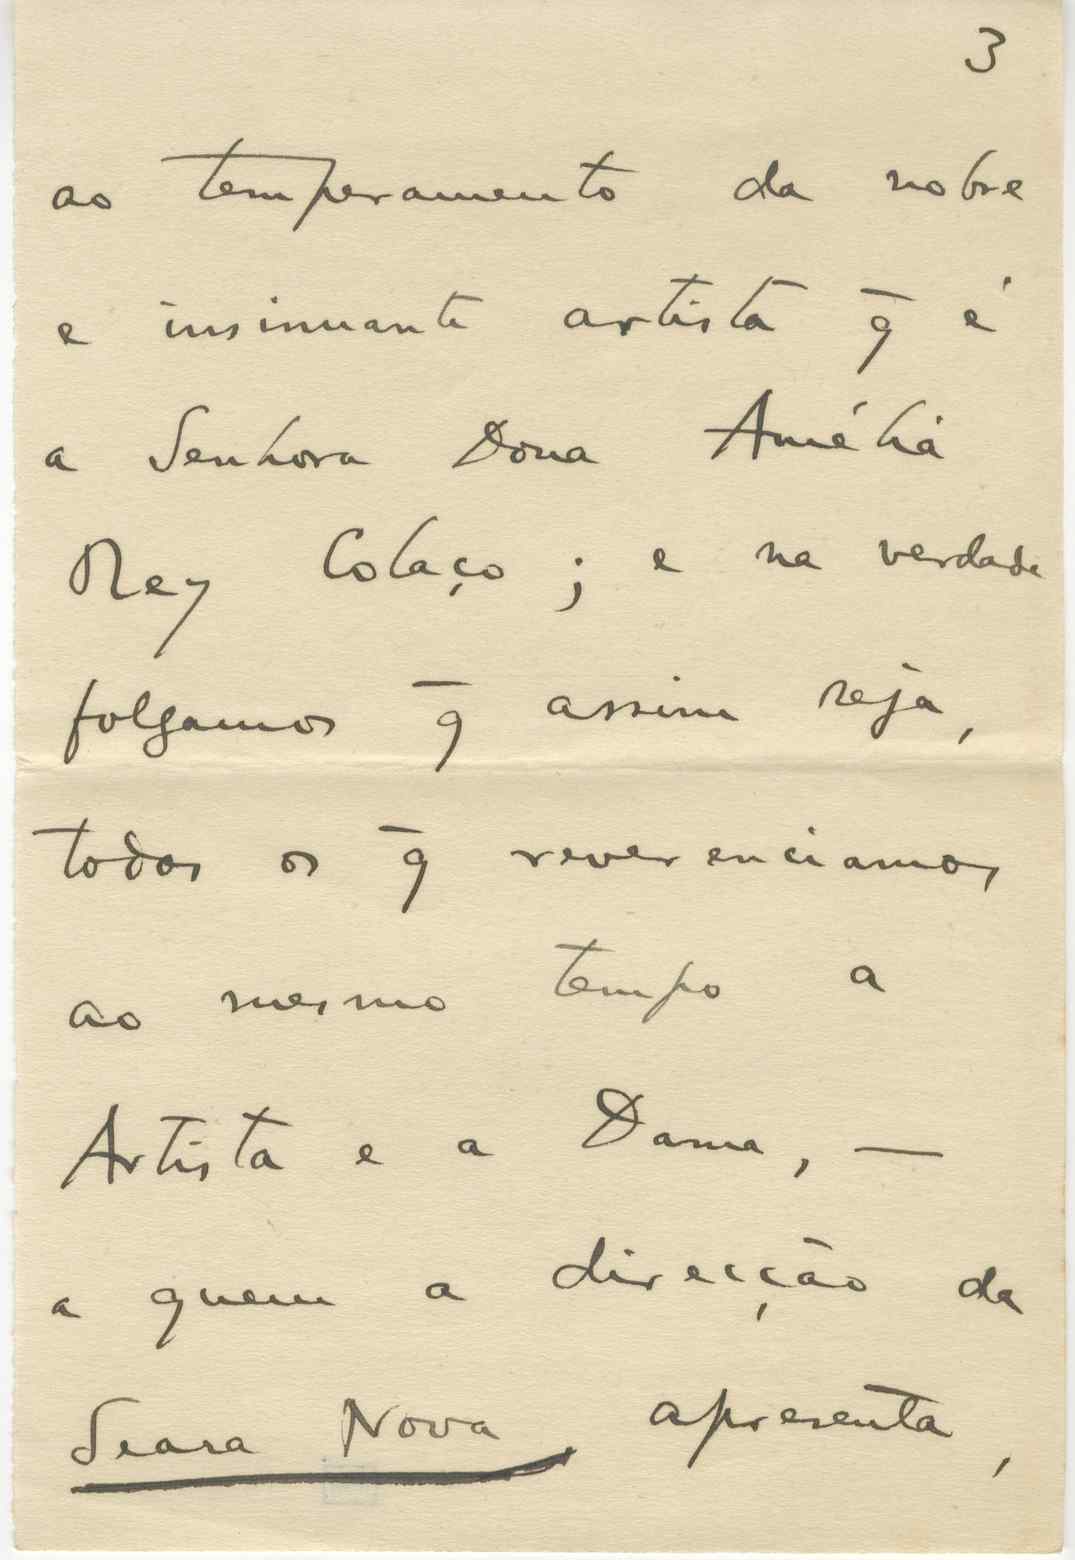 3
ao temperamento da nobre
e insinuante artista q̄ é
a Senhora Dona Amélia
Rey Colaço ; e na verdade
folgamos q̄ assim seja,
todos os q̄ reverenciamos
ao mesmo tempo a
Artista e a Dama, —
a quem a direcção da
Seara Nova apresenta,